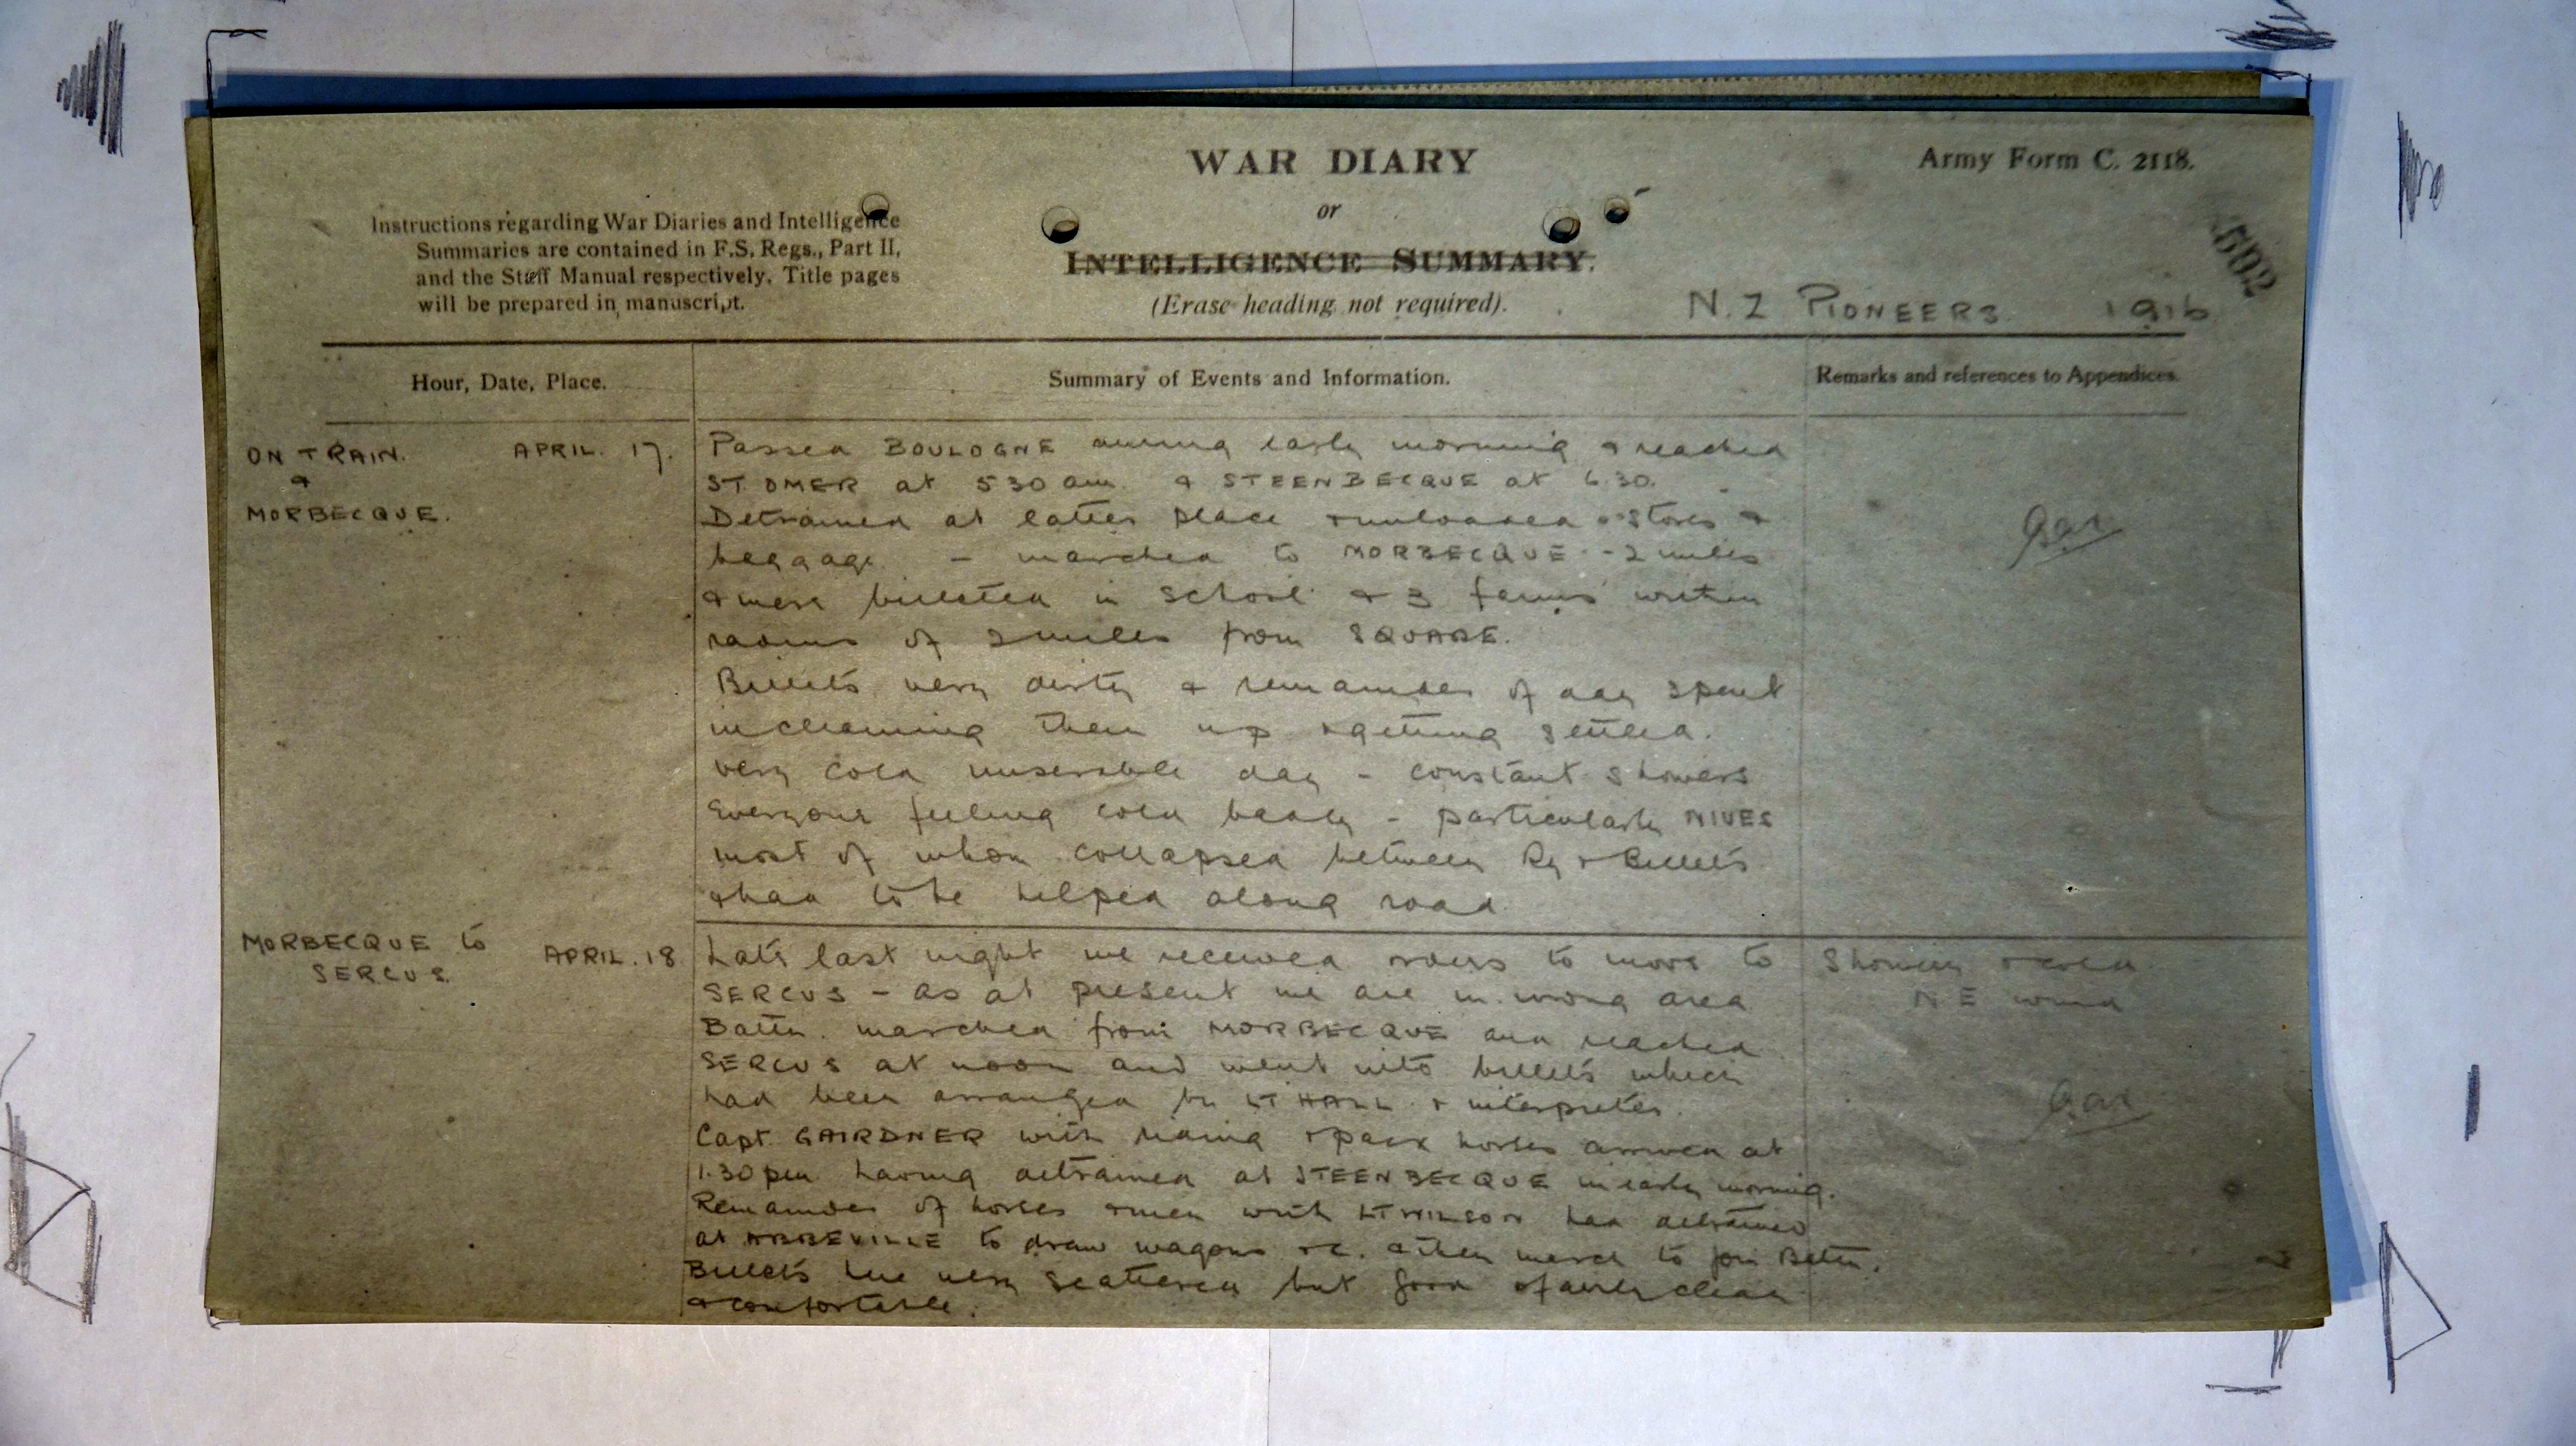 WAR DIARY
or
INTELLIGENCE SUMMARY.
(Erase heading not required).
Army Form C. 2118.
Instructions regarding War Diaries and Intelligence
Summaries are contained in F.S. Regs., Part II,
and the Staff Manual respectively. Title pages
will be prepared in manuscript.
N.Z PIONEERS 1916
Hour, Date, Place.
Summary of Events and Information.
Remarks and references to Appendices.
ON TRAIN. APRIL. 17.
&
MORBECQUE.
Passed BOULOGNE during early morning & reached
ST. OMER at 530 am & STEENBECQUE at 6.30.
Detrained at latter place & unloaded stores &
baggage - marched to MORBECQUE - 2 miles
& were billeted in school & 3 farms within
radius of 2 miles from SQUARE.
Billets very dirty & remainder of day spent
in cleaning them up & getting settled.
very cold miserable day - constant showers
Everyone feeling cold badly - particularly NIUES
most of whom collapsed between Ry & Billets
& had to be helped along road
MORBECQUE to APRIL. 18
SERCUS.
Late last night we received orders to move to
SERCUS - as at present we are in wrong area
Battn. marched from MORBECQUE and reached
SERCUS at noon and went into billets which
had been arranged by LT HALL & interpreter.
Capt. GAIRDNER with riding & pack horses arrived at
1.30 pm having detrained at STEENBECQUE in early morning.
Remainder of horses & men with LT WILSON had detrained
at ABBEVILLE to draw wagons &c. & then march to join Battn.
Billets here very scattered but good & fairly clean
& comfortable.
Showery & cold
N E wind